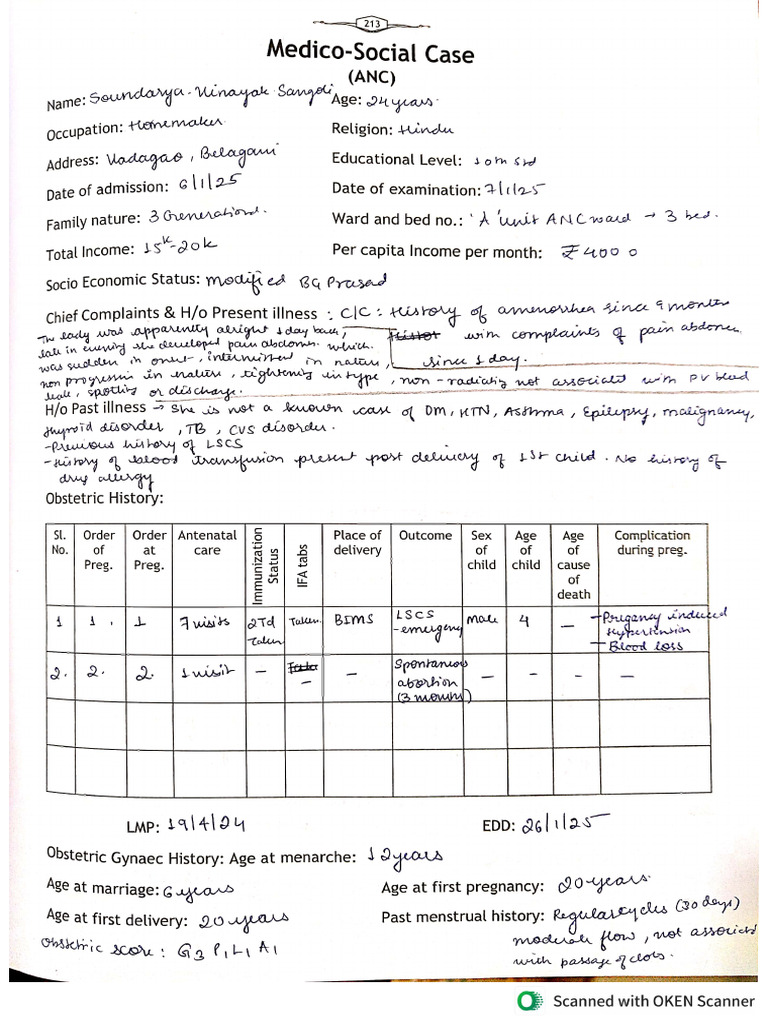 213
Medico-Social Case
(ANC)
Name: Soundarya Vinayak Sangoli Age: 24 years
Occupation: Homemaker Religion: Hindu
Address: Vadagao, Belagavi Educational Level: 10th std
Date of admission: 6/1/25 Date of examination: 7/1/25
Family nature: 3 Generational. Ward and bed no.: 'A' unit ANC ward → 3 bed.
Total Income: 15k-20k Per capita Income per month: ₹4000
Socio Economic Status: Modified BG Prasad
Chief Complaints & H/o Present illness : C/C : History of amenorrhea since 9 months
with complaints of pain abdomen
since 1 day.
The lady was apparently alright 1 day back,
late in evening she developed pain abdomen which
was sudden in onset, intermittent in nature,
non progressive in nature, tightening in type, non-radiating not associated with PV bleed
leak, spotting or discharge.
H/o Past illness → She is not a known case of DM, HTN, Asthma, Epilepsy, malignancy,
thyroid disorder, TB, CVS disorder.
-Previous history of LSCS
-History of blood transfusion present post delivery of 1st child. No history of
drug allergy
Obstetric History:
Sl. No. Order of Preg. Order at Preg. Antenatal care Immunization Status IFA tabs Place of delivery Outcome Sex of child Age of child Age of cause of death Complication during preg.
1 1. 1 7 visits 2Td Taken Taken BIMS LSCS -emergency Male 4 — -Pregancy induced Hypertension - Blood loss
2. 2. 2. 1 visit - - - Spontaneous abortion (3 months) - - - -
LMP: 19/4/24 EDD: 26/1/25
Obstetric Gynaec History: Age at menarche: 12 years
Age at marriage: 6 years Age at first pregnancy: 20 years.
Age at first delivery: 20 years Past menstrual history: Regular cycles (30 days)
moderate flow, not associated
with passage of clots.
Obstetric score: G3 P1 L1 A1
Scanned with OKEN Scanner